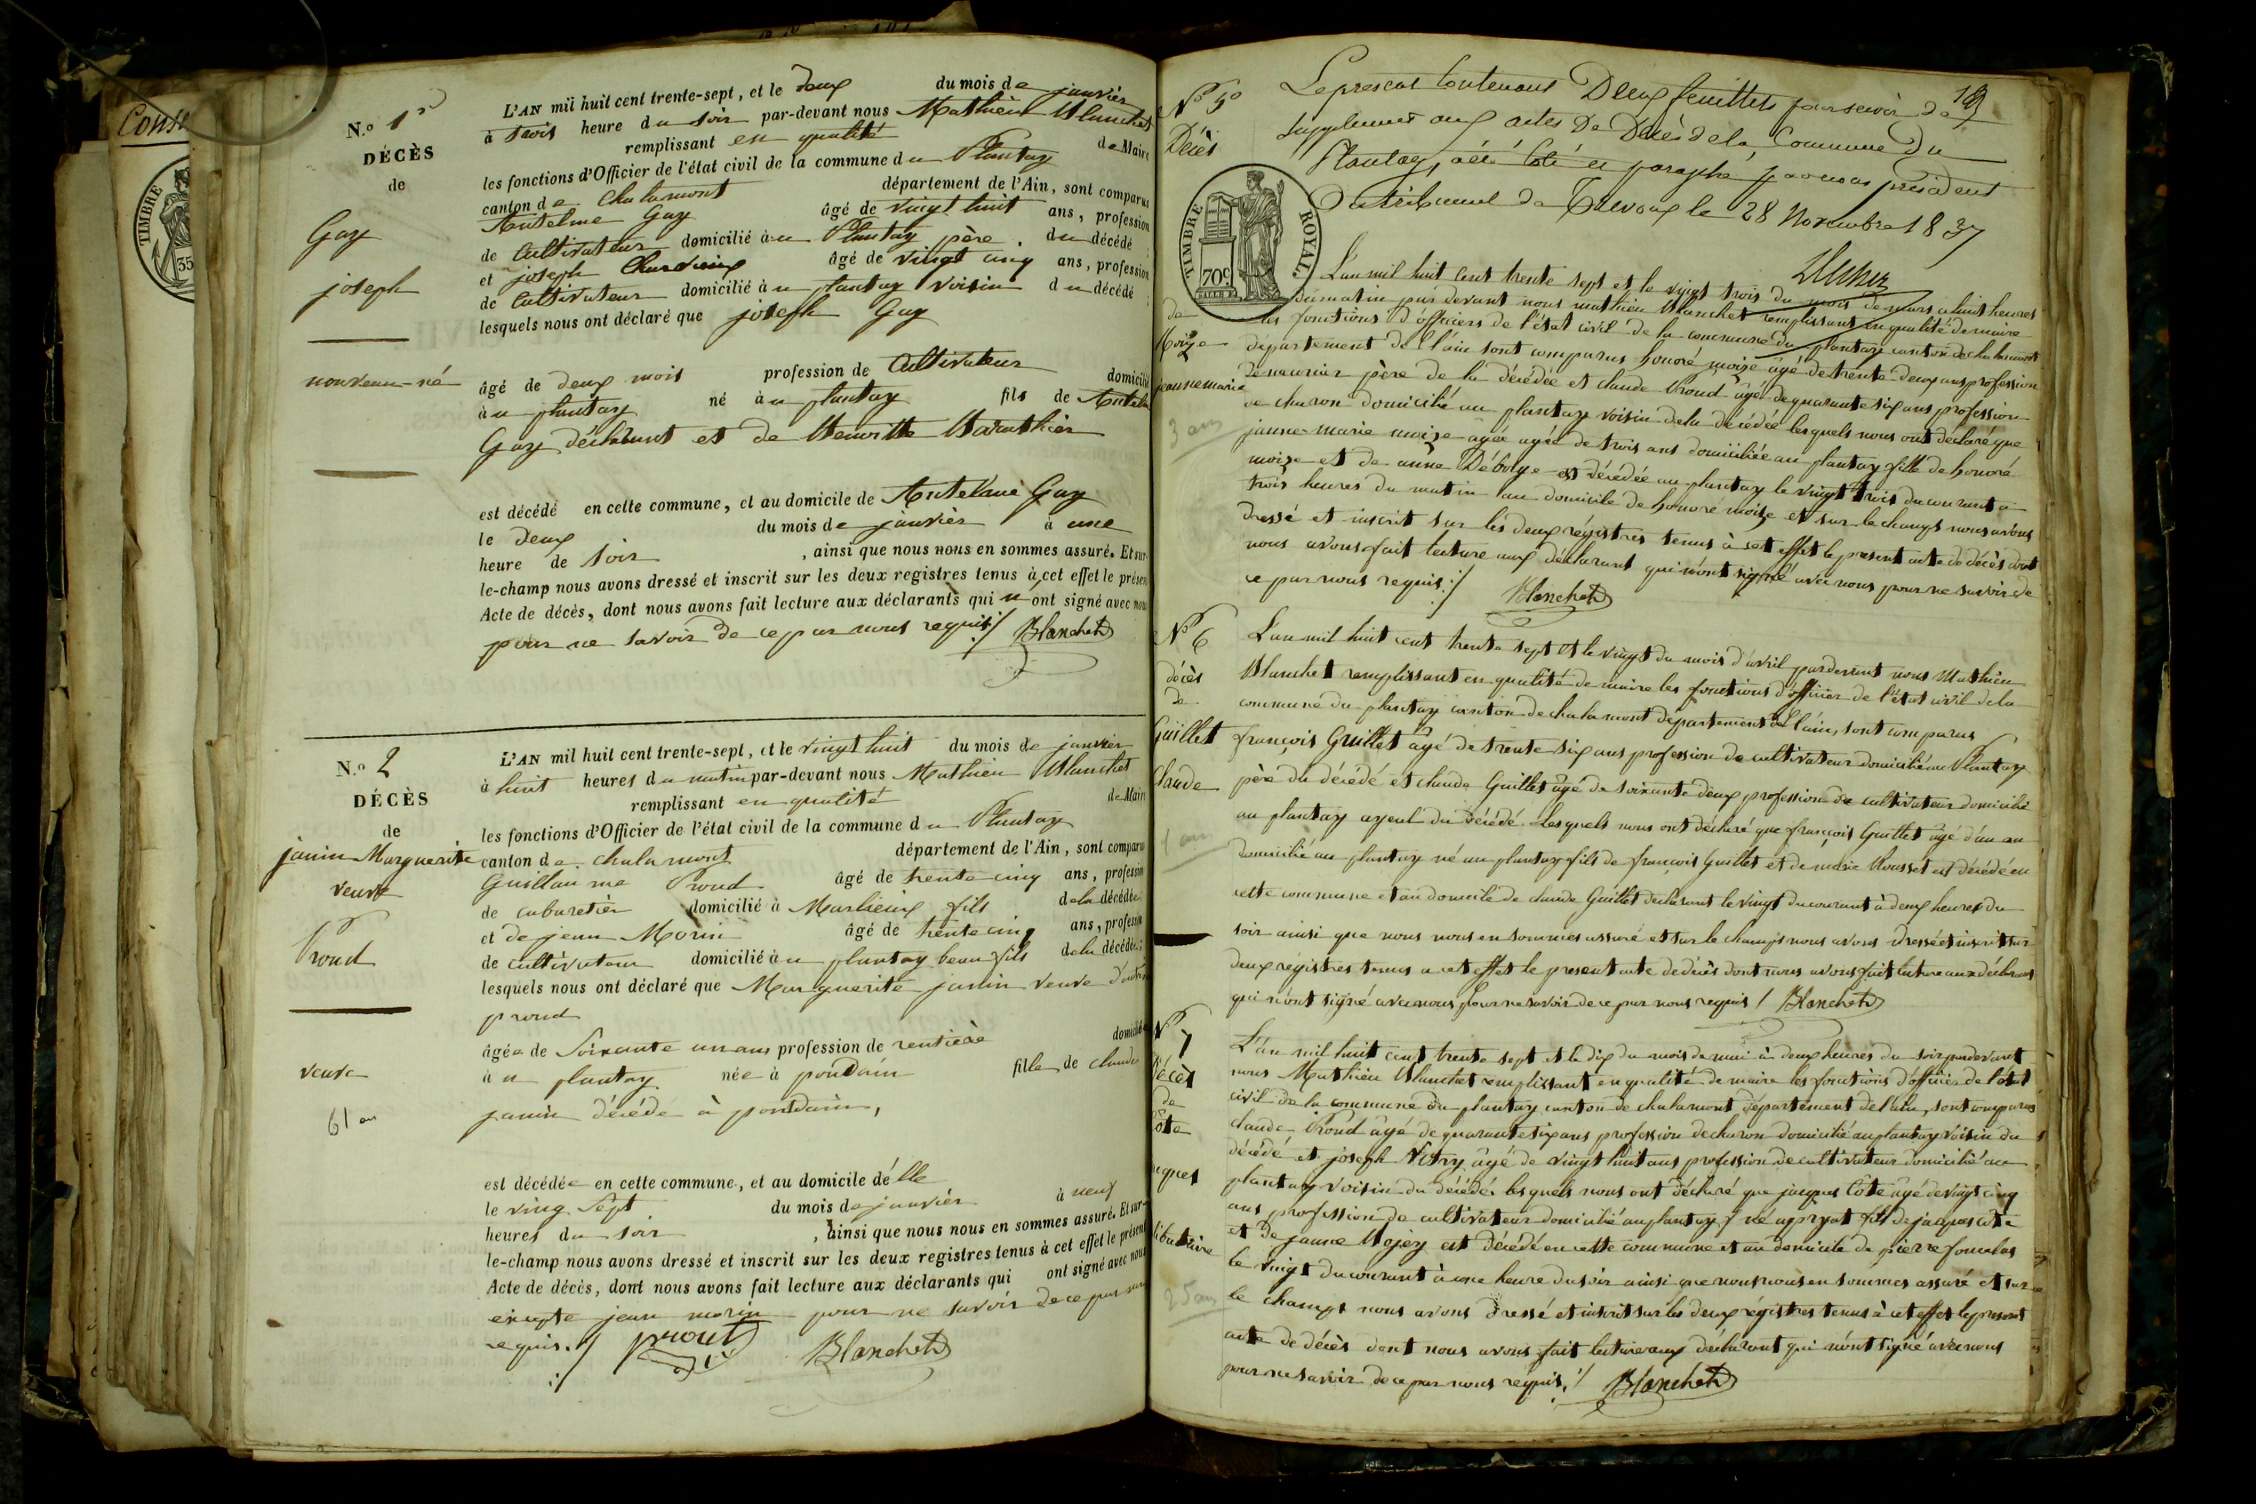 Conse
TIMBRE
35
N.o 1er
DÉCÈS
de
Gay
joseph
nouveau-né
L'AN mil huit cent trente-sept, et le deux du mois de janvier
à trois heure du soir par-devant nous Mathieu Blanchet
remplissant en qualité de Maire
les fonctions d'Officier de l'état civil de la commune du Plantay
canton de Chalamont département de l'Ain, sont comparus
Antelme Gay âgé de vingt huit ans, profession
de cultivateur domicilié au Plantay père du décédé
et joseph âgé de vingt cinq ans, profession
de cultivateur domicilié au plantay voisin du décédé
lesquels nous ont déclaré que joseph Gay
âgé de deux mois profession de cultivateur domicilié
au plantay né au plantay fils de Antelme
Gay déclarant et de
est décédé en cette commune, et au domicile de Antelme Gay
le deux du mois de janvier à une
heure de soir , ainsi que nous nous en sommes assuré. Et sur-
le-champ nous avons dressé et inscrit sur les deux registres tenus à cet effet le présent
Acte de décès, dont nous avons fait lecture aux déclarants qui n'ont signé avec nous
pour ne savoir de ce par nous requis ./ Blanchet
N.o 2
DÉCÈS
de
janin Marguerite
veuve
Proud
veuve
61 an
L'AN mil huit cent trente-sept, et le vingt huit du mois de janvier
à huit heures du matin par-devant nous Mathieu Blanchet
remplissant en qualité de Maire
les fonctions d'Officier de l'état civil de la commune du Plantay
canton de chalamont département de l'Ain, sont comparus
Guillaume Proud âgé de trente cinq ans, profession
de cabaretier domicilié à Marlieux fils de la décédée
et de jean Morin âgé de trente cinq ans, profession
de cultivateur domicilié au plantay beau fils de la décédée;
lesquels nous ont déclaré que Marguerite janin veuve
proud
âgée de soixante un ans profession de rentière domiciliée
au plantay née à pondain fille de claude
janin décédé à pondain,
est décédée en cette commune, et au domicile d'elle
le ving sept du mois de janvier à neuf
heures du soir , ainsi que nous nous en sommes assuré. Et sur-
le-champ nous avons dressé et inscrit sur les deux registres tenus à cet effet le présent
Acte de décès, dont nous avons fait lecture aux déclarants qui ont signé avec nous
excepte jean morin pour ne savoir de ce par nous
requis ./ prout Blanchet
Le présent contenant Deux feuillets pour servir de
supplement aux actes de Décès de la Commune du
Plantay, a été coté et paraphé par nous président
du tribunal de Trevoux le 28 Novembre 1837
N° 5
Décès
TIMBRE ROYAL
70c
de
Moize
jeanne marie
3 ans
L'an mil huit cent trente sept et le vingt trois du mois de mars a huit heures
du matin par devant nous mathieu Blanchet remplissant en qualité de maire
les fonctions d'officiers de l'état civil de la commune du plantay canton de chalamont
département de l'ain sont comparus honoré moize âgé de trente deux ans profession
de meunier père de la décédée et claude Proud âgé de quarante six ans profession
de charon domicilié au plantay voisin de la décédée lesquels nous ont déclaré que
jeanne-marie moize agée agée de trois ans domiciliée au plantay fille de honoré
moize et de anne est décédée au plantay le vingt trois du courant à
trois heures du matin au domicile de honoré moize et sur le champs nous avons
dressé et inscrit sur les deux régistres tenus à cet effet le present acte de décès dont
nous avons fait lecture aux déclarant qui n'ont signé avec nous pour ne savoir de
ce par nous requis ./ Blanchet
N° 6
décès
de
Guillet
Claude
1 an
L'an mil huit cent trente sept et le vingt du mois d'avril par devant nous Mathieu
Blanchet remplissant en qualité de maire les fonctions d'officier de l'état civil de la
commune du plantay canton de chalamont département de l'ain, sont comparus
françois Guillet âgé de trente six ans profession de cultivateur domicilié au Plantay
père du décédé et claude Guillet âgé de soixante deux profession de cultivateur domicilié
au plantay ayeul du décédé. Lesquels nous ont déclaré que françois Guillet âgé d'un an
domicilié au plantay né au plantay fils de françois Guillet et de marie Rousset est décédé en
cette commune et au domicile de claude Guillet declarant le vingt du courant à deux heures du
soir ainsi que nous nous en sommes assuré et sur le champs nous avons dressé et inscrit sur
deux régistres tenus a cet effet le present acte de décès dont nous avons fait lecture aux déclarans
qui n'ont signé avec nous pour ne savoir de ce par nous requis / Blanchet
N° 7
Décès
de
Côte
jacques
célibataire
25 ans
L'an mil huit cent trente sept et le dix du mois de mai à deux heures du soir pardevant
nous Mathieu Blanchet remplissant en qualité de maire les fonctions d'officier de l'état
civil de la commune du plantay canton de chalamont département de l'ain, sont comparus
claude Proud âgé de quarante six ans profession de charon domicilié au plantay voisin du
décédé et joseph Vitry âgé de vingt huit ans profession de cultivateur domicilié au
plantay voisin du décédé. lesquels nous ont déclaré que jacques Côte âgé de vingt cinq
ans profession de cultivateur domicilié au plantay né a fils de jacques côte
et de jeanne est décédé en cette commune et au domicile de pierre
le vingt du courant à une heure du soir ainsi que nous nous en sommes assuré et sur
le champs nous avons dressé et inscrit sur les deux régistres tenus à cet effet le present
acte de décès dont nous avons fait lecture aux déclarant qui n'ont signé avec nous
pour ne savoir de ce par nous requis ./ Blanchet